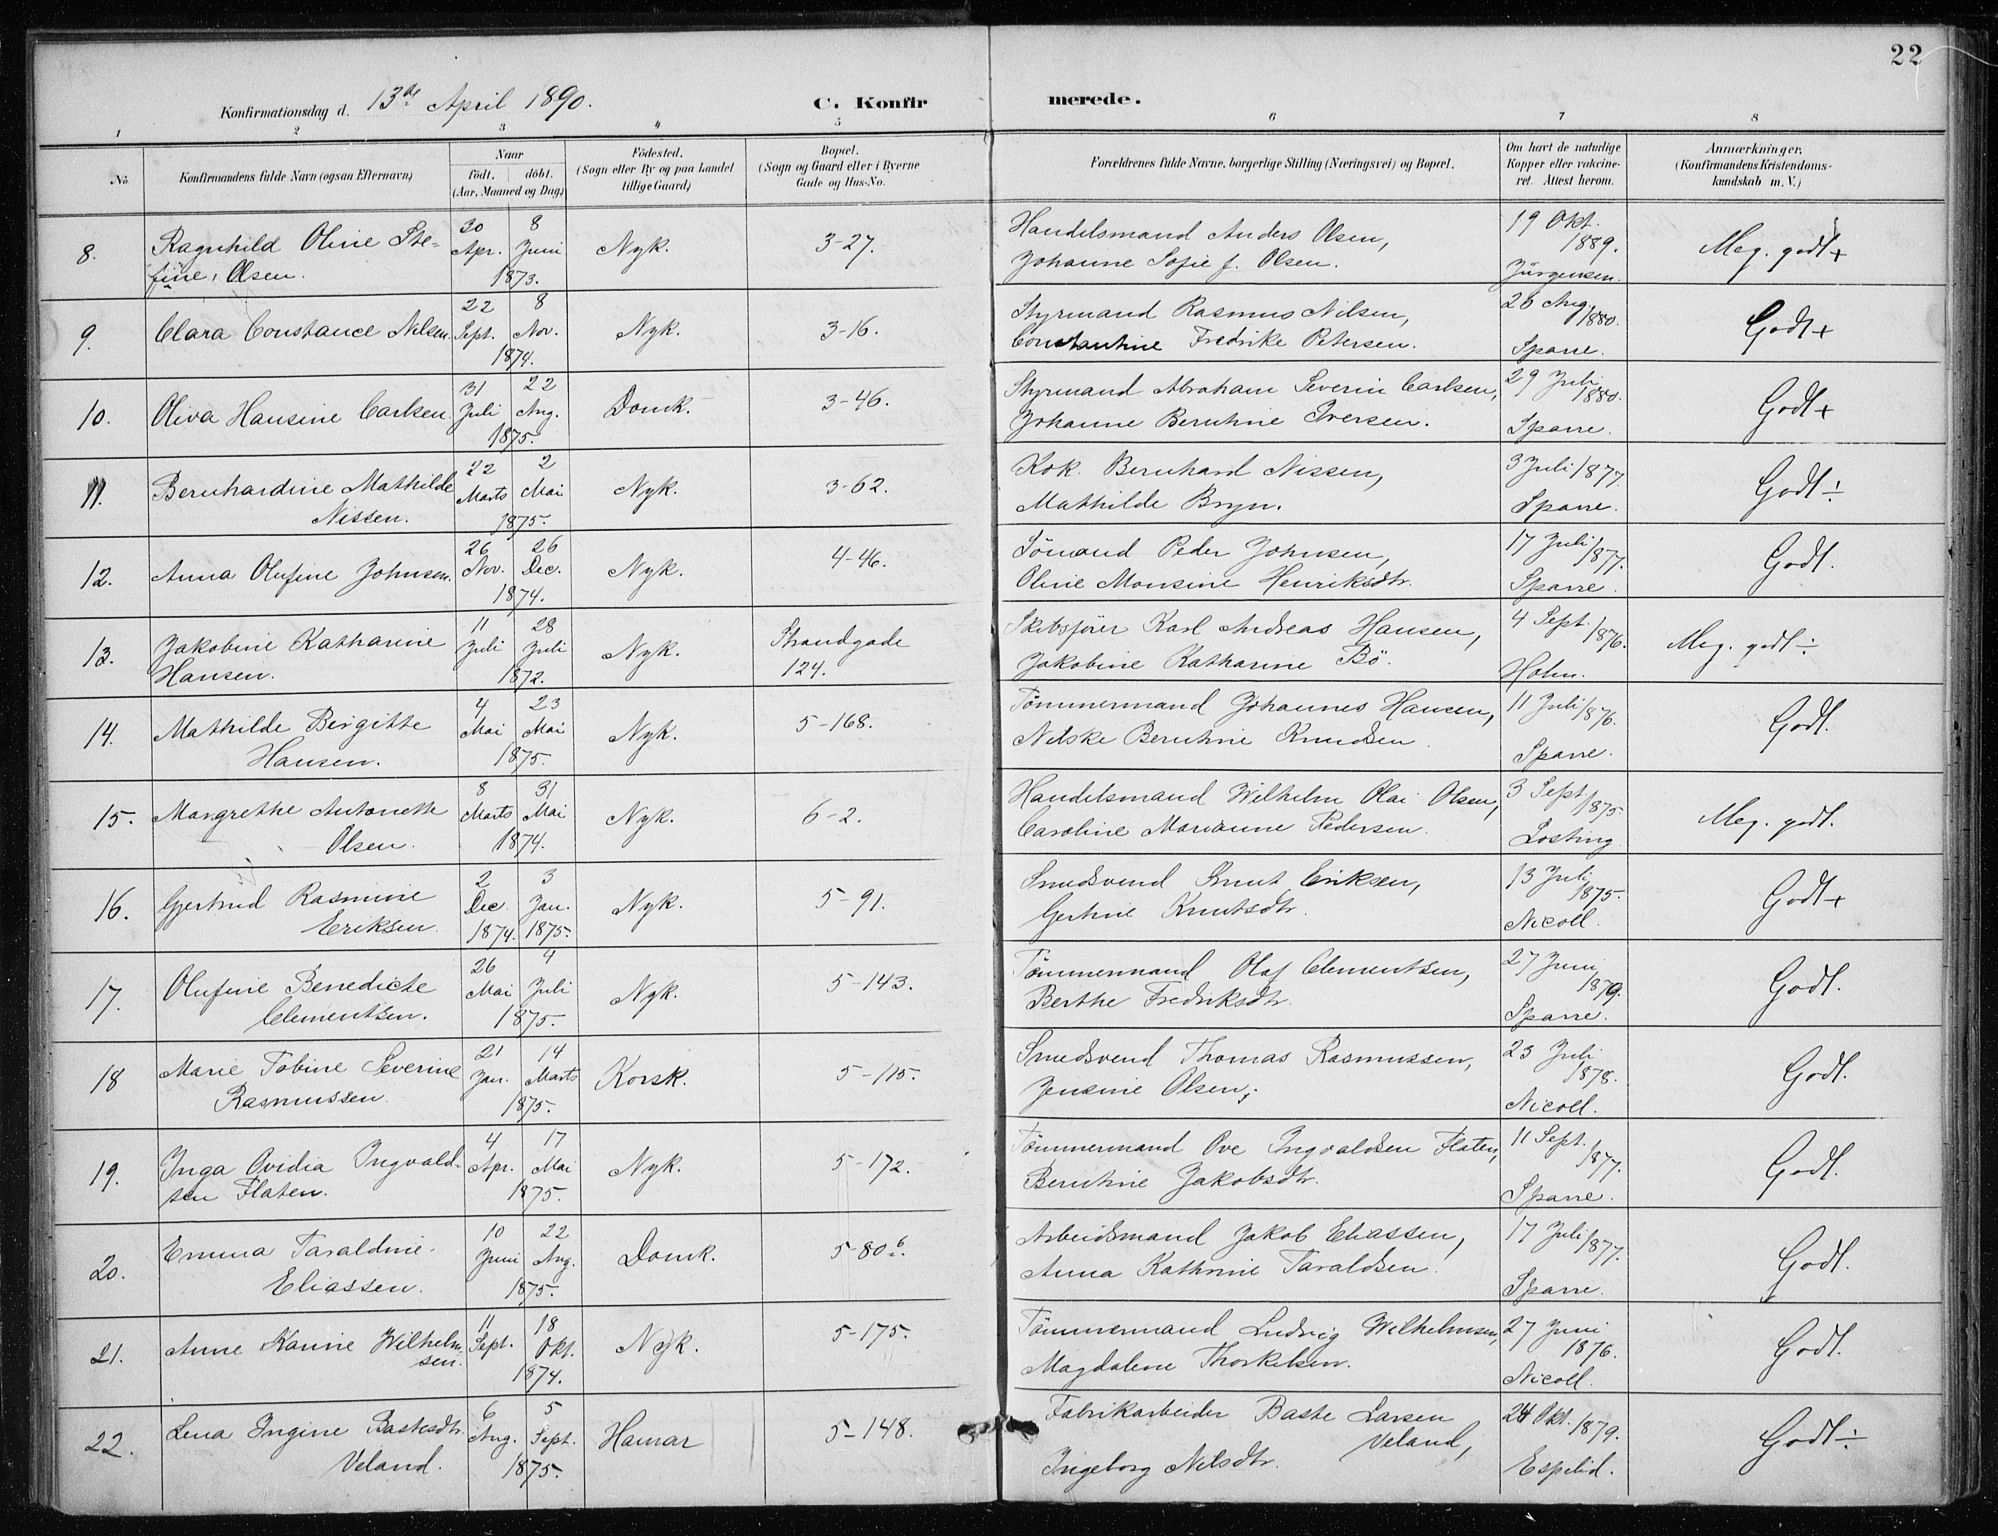 22
Konfirmationsdag d. 13de April 1890. C. Konfirmerede.
1 2 3 4 5 6 7 8
No. Konfirmandens fulde Navn (ogsaa Efternavn) Naar født. døbt. (Aar, Maaned og Dag) Fødested. (Sogn eller By og paa Landet tillige Gaard) Bopæl. (Sogn og Gaard eller i Byerne Gade og Hus-No. Forældrenes fulde Navne, borgerlige Stilling (Næringsvei) og Bopæl. Om havt de naturlige Kopper eller vakcineret. Attest herom. Anmærkninger, (Konfirmandens Kristendomskundskab m. V.)
8. Ragnhild Oline Stefine, Olsen. 30 Apr. 8 Juni 1873. Nyk. 3-27. Handelsmand Anders Olsen, Johanne Sofie f. Olsen. 19 Okt. 1889. Jürgensen. Meg. godt +
9. Clara Constance Nilsen. 22 Sept. 8 Nov. 1874. Nyk. 3-16. Styrmand Rasmus Nilsen, Constantine Fredrike Petersen. 26 Aug. 1880. Sparre. Godt +
10. Oliva Hansine Carlsen. 31 Juli 22 Aug. 1875. Domk. 3-46. Styrmand Abraham Severin Carlsen, Johanne Berntine Iversen. 29 Juli 1880. Sparre. Godt +
11. Bernhardine Mathilde Nissen. 22 Marts 2 Mai 1875. Nyk. 3-62. Kok. Bernhard Nissen, Mathilde Bryn. 3 Juli 1877. Sparre. Godt ÷
12. Anna Olufine Johnsen. 26 Nov. 26 Dec. 1874. Nyk. 4-46. Sømand Peder Johnsen, Oline Monsine Henriksdtr. 17 Juli 1877. Sparre. Godt.
13. Jakobine Katharine Hansen. 11 Juli 28 Juli 1872. Nyk. Strandgade 124. Skibsfører Karl Andreas Hansen, Jakobine Katharine Bö. 4 Sept. 1876. Holm. Meg. godt ÷
14. Mathilde Bergitte Hansen. 4 Mai 23 Mai 1875. Nyk. 5-168. Tømmermand Johannes Hansen, Nilske Berntine Knudsen. 11 Juli 1876. Sparre. Godt.
15. Margrethe Antonette Olsen. 8 Marts 31 Mai 1874. Nyk. 6-2. Handelsmand Wilhelm Olai Olsen, Caroline Marianne Pedersen. 3 Sept. 1875. Losting. Meg. godt.
16. Gjertrud Rasmine Eriksen. 2 Dec. 1874. 3 Jan. 1875. Nyk. 5-91. Smedsvend Knut Eriksen, Gertine Knutsdtr. 13 Juli 1875. Nicoll. Godt +
17. Olufine Benedicte Clementsen. 26 Mai 4 Juli 1875. Nyk. 5-143. Tømmermand Olaf Clementsen, Berthe Fredriksdtr. 27 Juni 1879. Sparre. Godt.
18 Marie Tobine Severine Rasmussen. 21 Jan. 14 Marts 1875. Korsk. 5-115. Smedsvend Thomas Rasmussen, Jensine Olsen. 23 Juli 1878. Nicoll. Godt.
19. Inga Ovidia Ingvaldsen Flaten. 4 Apr. 17 Mai 1875. Nyk. 5-172. Tømmermand Ove Ingvaldsen Flaten, Berntine Jakobsdtr. 11 Sept. 1877. Sparre. Godt.
20. Emma Taraldine Eliassen. 10 Juni 22 Aug. 1875. Domk. 5-80b. Arbeidsmand Jakob Eliassen, Anna Kathrine Taraldsen. 17 Juli 1877. Sparre. Godt.
21. Anne Karine Wilhelmsen. 11 Sept. 18 Okt. 1874. Nyk. 5-175. Tømmermand Ludvig Wilhelmsen, Magdalene Thorkelsen. 27 Juni 1876. Nicoll. Godt.
22. Lena Ingine Bastesdtr. Veland. 6 Aug. 5 Sept. 1875. Hamar 5-148. Fabrikarbeider Baste Larsen Veland, Ingeborg Nilsdtr. 24 Okt. 1879. Espelid. Godt ÷